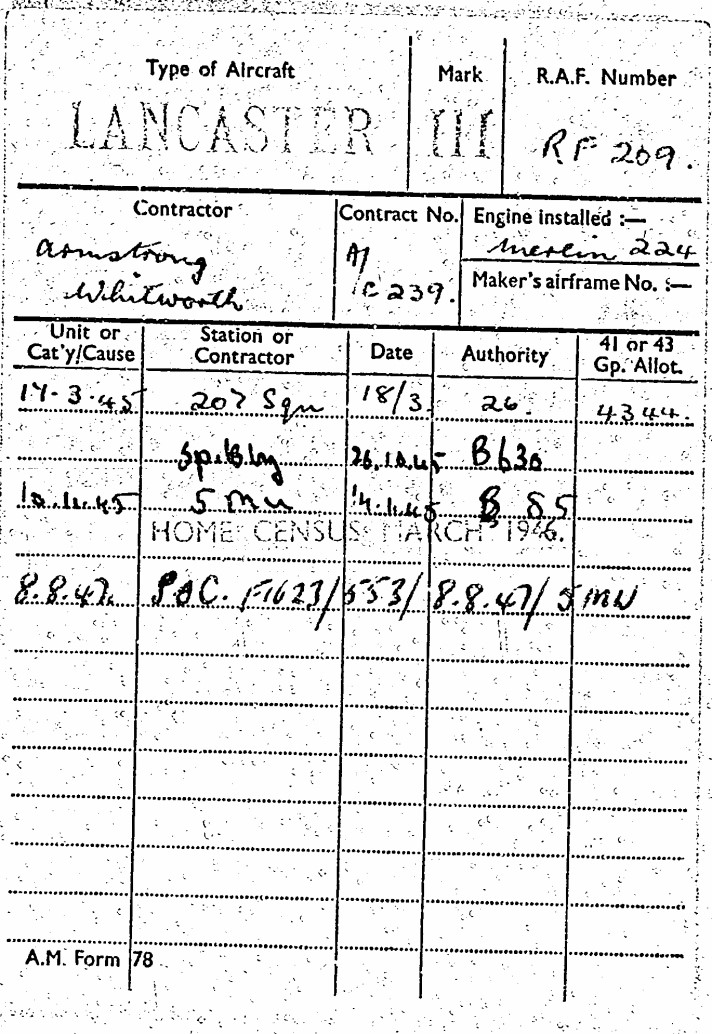 Type of Aircraft Mark R.A.F. Number
LANCASTER III RF 209.
Contractor Contract No. Engine installed :—
Armstrong A/ Merlin 224
Whitworth C 239. Maker's airframe No. :—
Unit or Cat'y/Cause Station or Contractor Date Authority 41 or 43 Gp. Allot.
17-3-45 207 Sqn 18/3. 26. 4344.
Spilsby 26.10.45 B630
5 MU B 85
HOME CENSUS MARCH 1946.
8.8.47. F1623/553/ 8.8.47/ 5 MU
A.M. Form 78